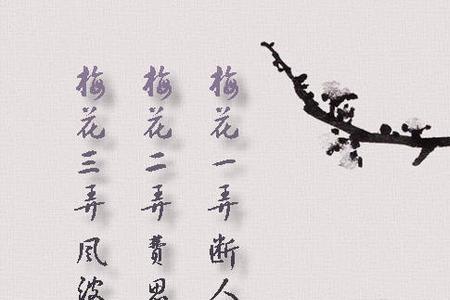 梅花一弄断人
梅花二弄費思
梅花三弄风波